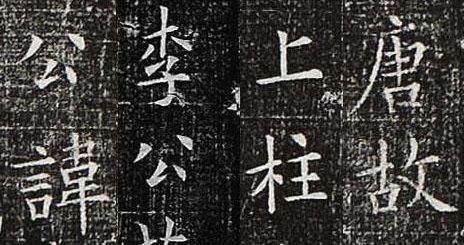 唐故
上柱
李公
公諱